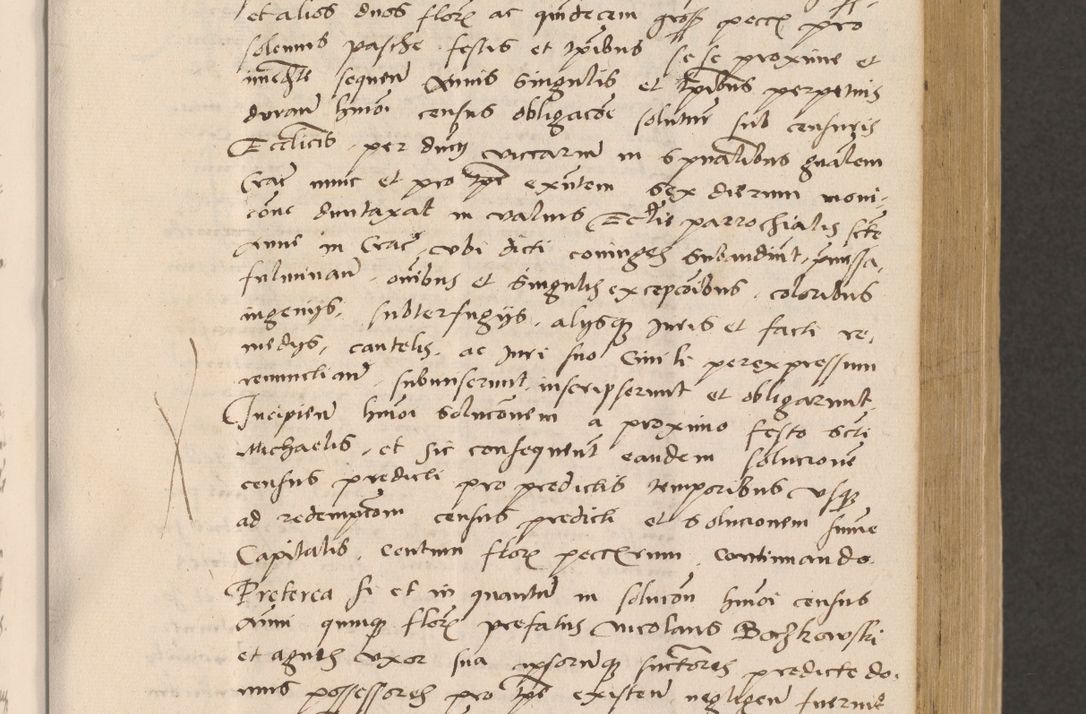 et alios duos floren ac quindecem gross pecc pro
solennis pasche festis et tpibus se se proxime et
imediate sequen Annis singulis et tpibus perpetuis
duran hmoi census obligacoe soluturi sub censuris
Ecclicis per dnum viccarium in spualibus gnalem
Crac nunc et pro tpe existentem sex dierum moni-
cone duntaxat in valuis Ecclie parrochialis scte
Anne in Crac, vbi dicti coniuges subandiunt, pmissa,
fulminan, omibus et singulis excepcoibus, coloribus
ingenijs, subterfugijs, alijsque Juris et facti re,
medijs, cautelis, ac Juri suo Ciuili per expressum
renunctian, subunserunt, inscripserunt et obligarunt,
Incipien hmoi solucionem a proximo festo scti
Michaelis, et sic consequent eandem solucione
census predicti pro predictis temporibus vsque
ad redempcom census predicti et solucionem sume
Capitalis, centum floren pecc rum, continuando.
Preterea si et in quantum in solucon hmoi census
Anni quinque floren prefatus Nicolaus Boczkowski
et agnes vxor sua ipsorumque successores predicte do-
mus possessores pro tpe existen negligen fuerint